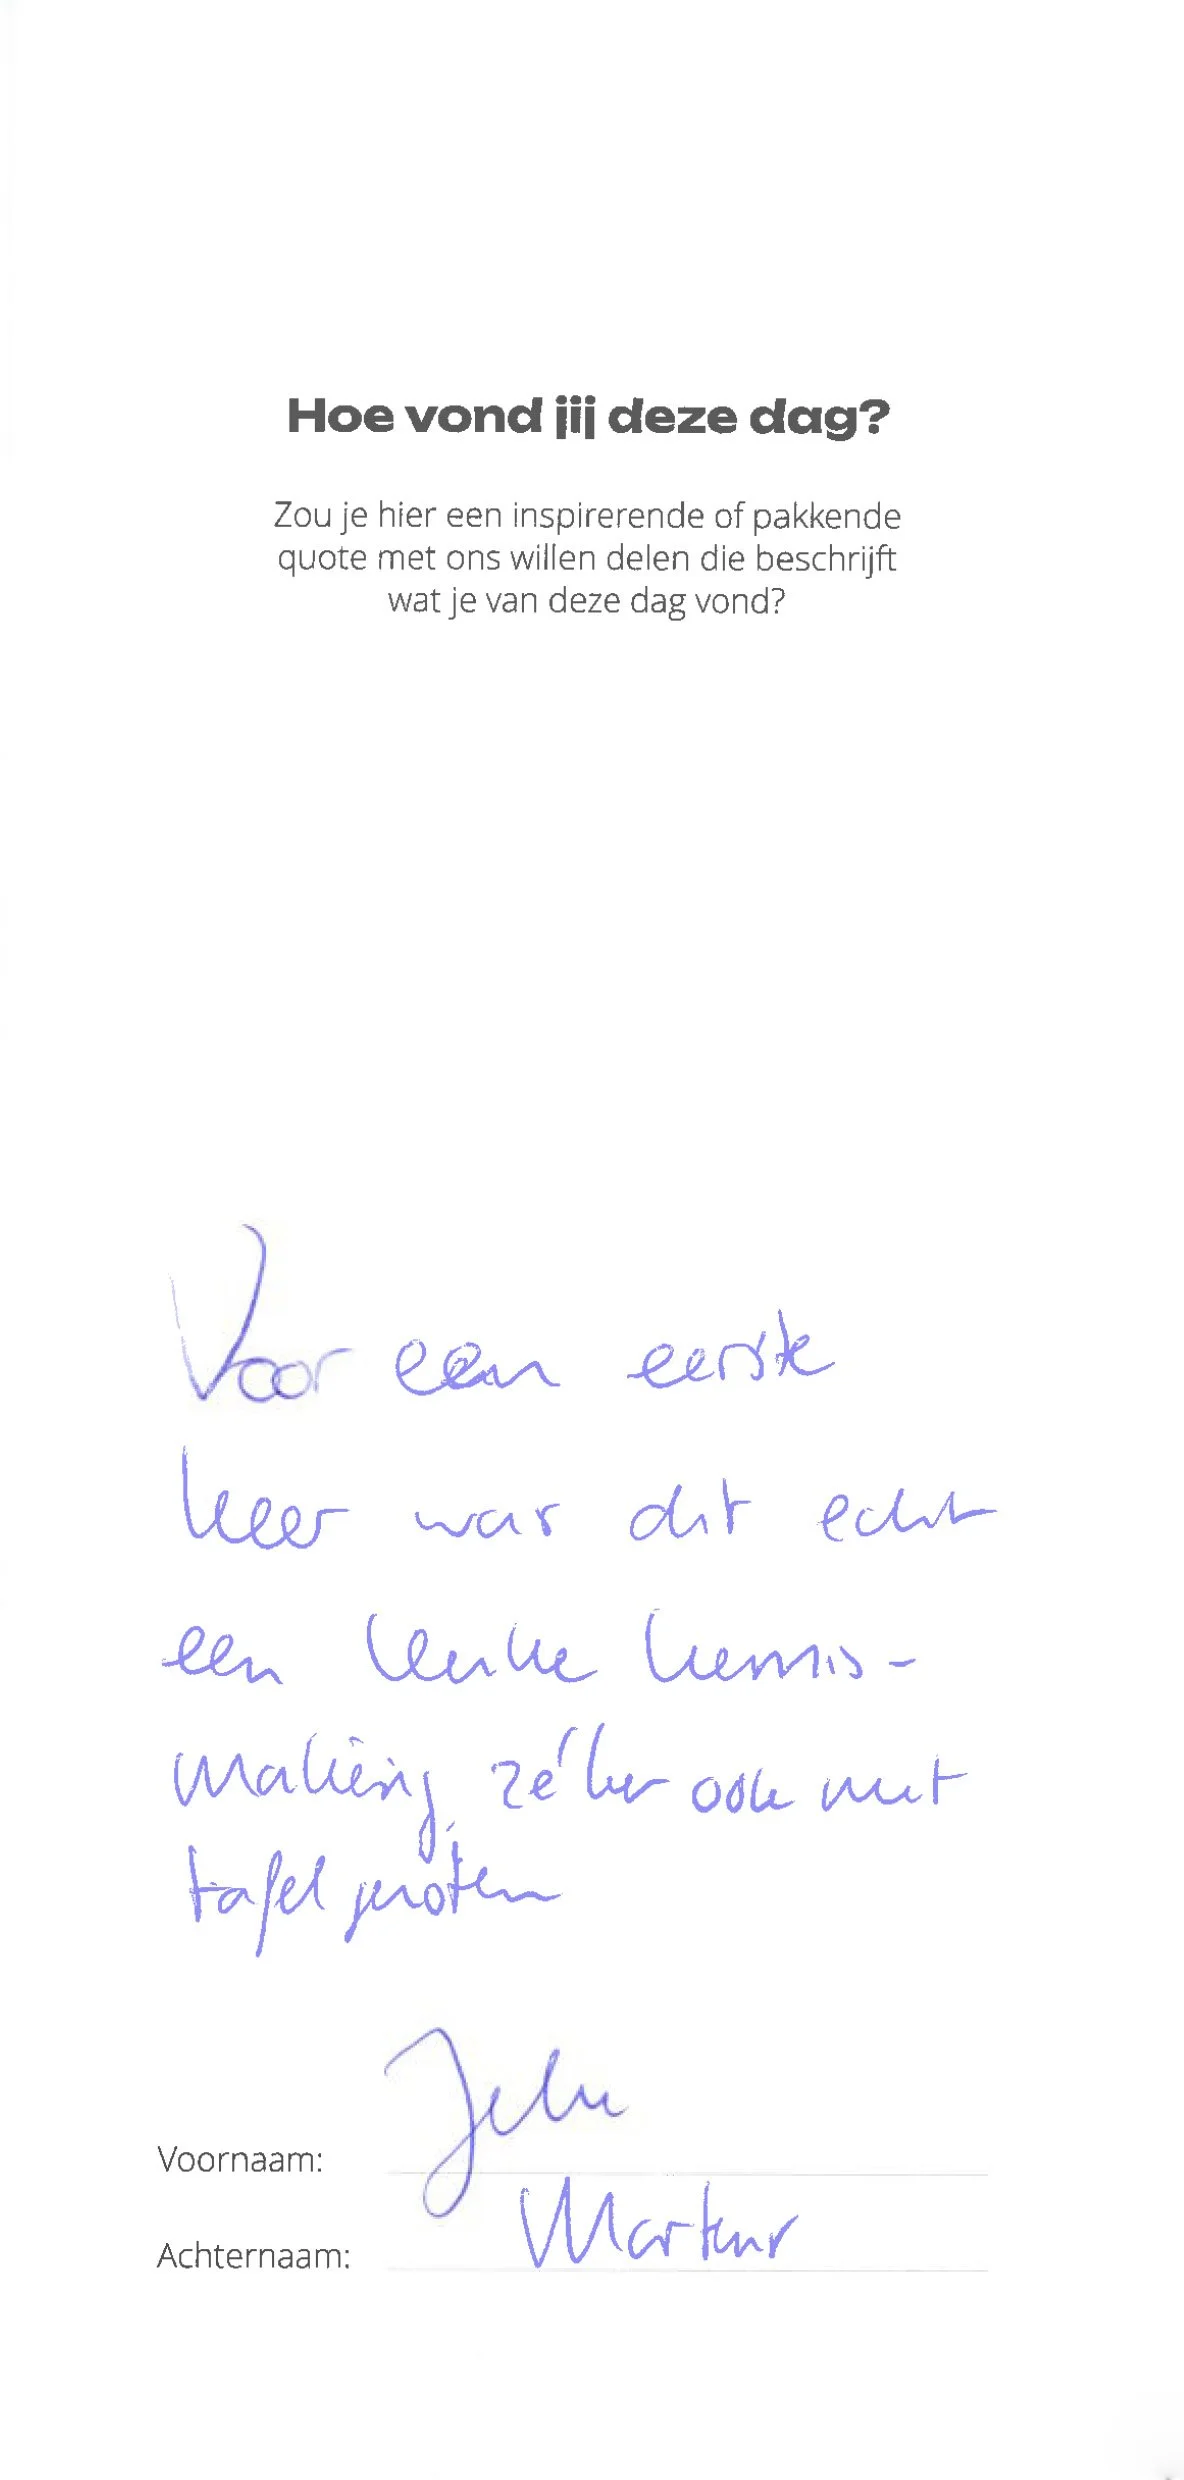 Hoe vond jij deze dag?
Zou je hier een inspirerende of pakkende
quote met ons willen delen die beschrijft
wat je van deze dag vond?
Voor een eerste
keer was dit echt
een leuke kennis-
making, zéker ook met
tafelgenoten
Voornaam:
Achternaam: Martens